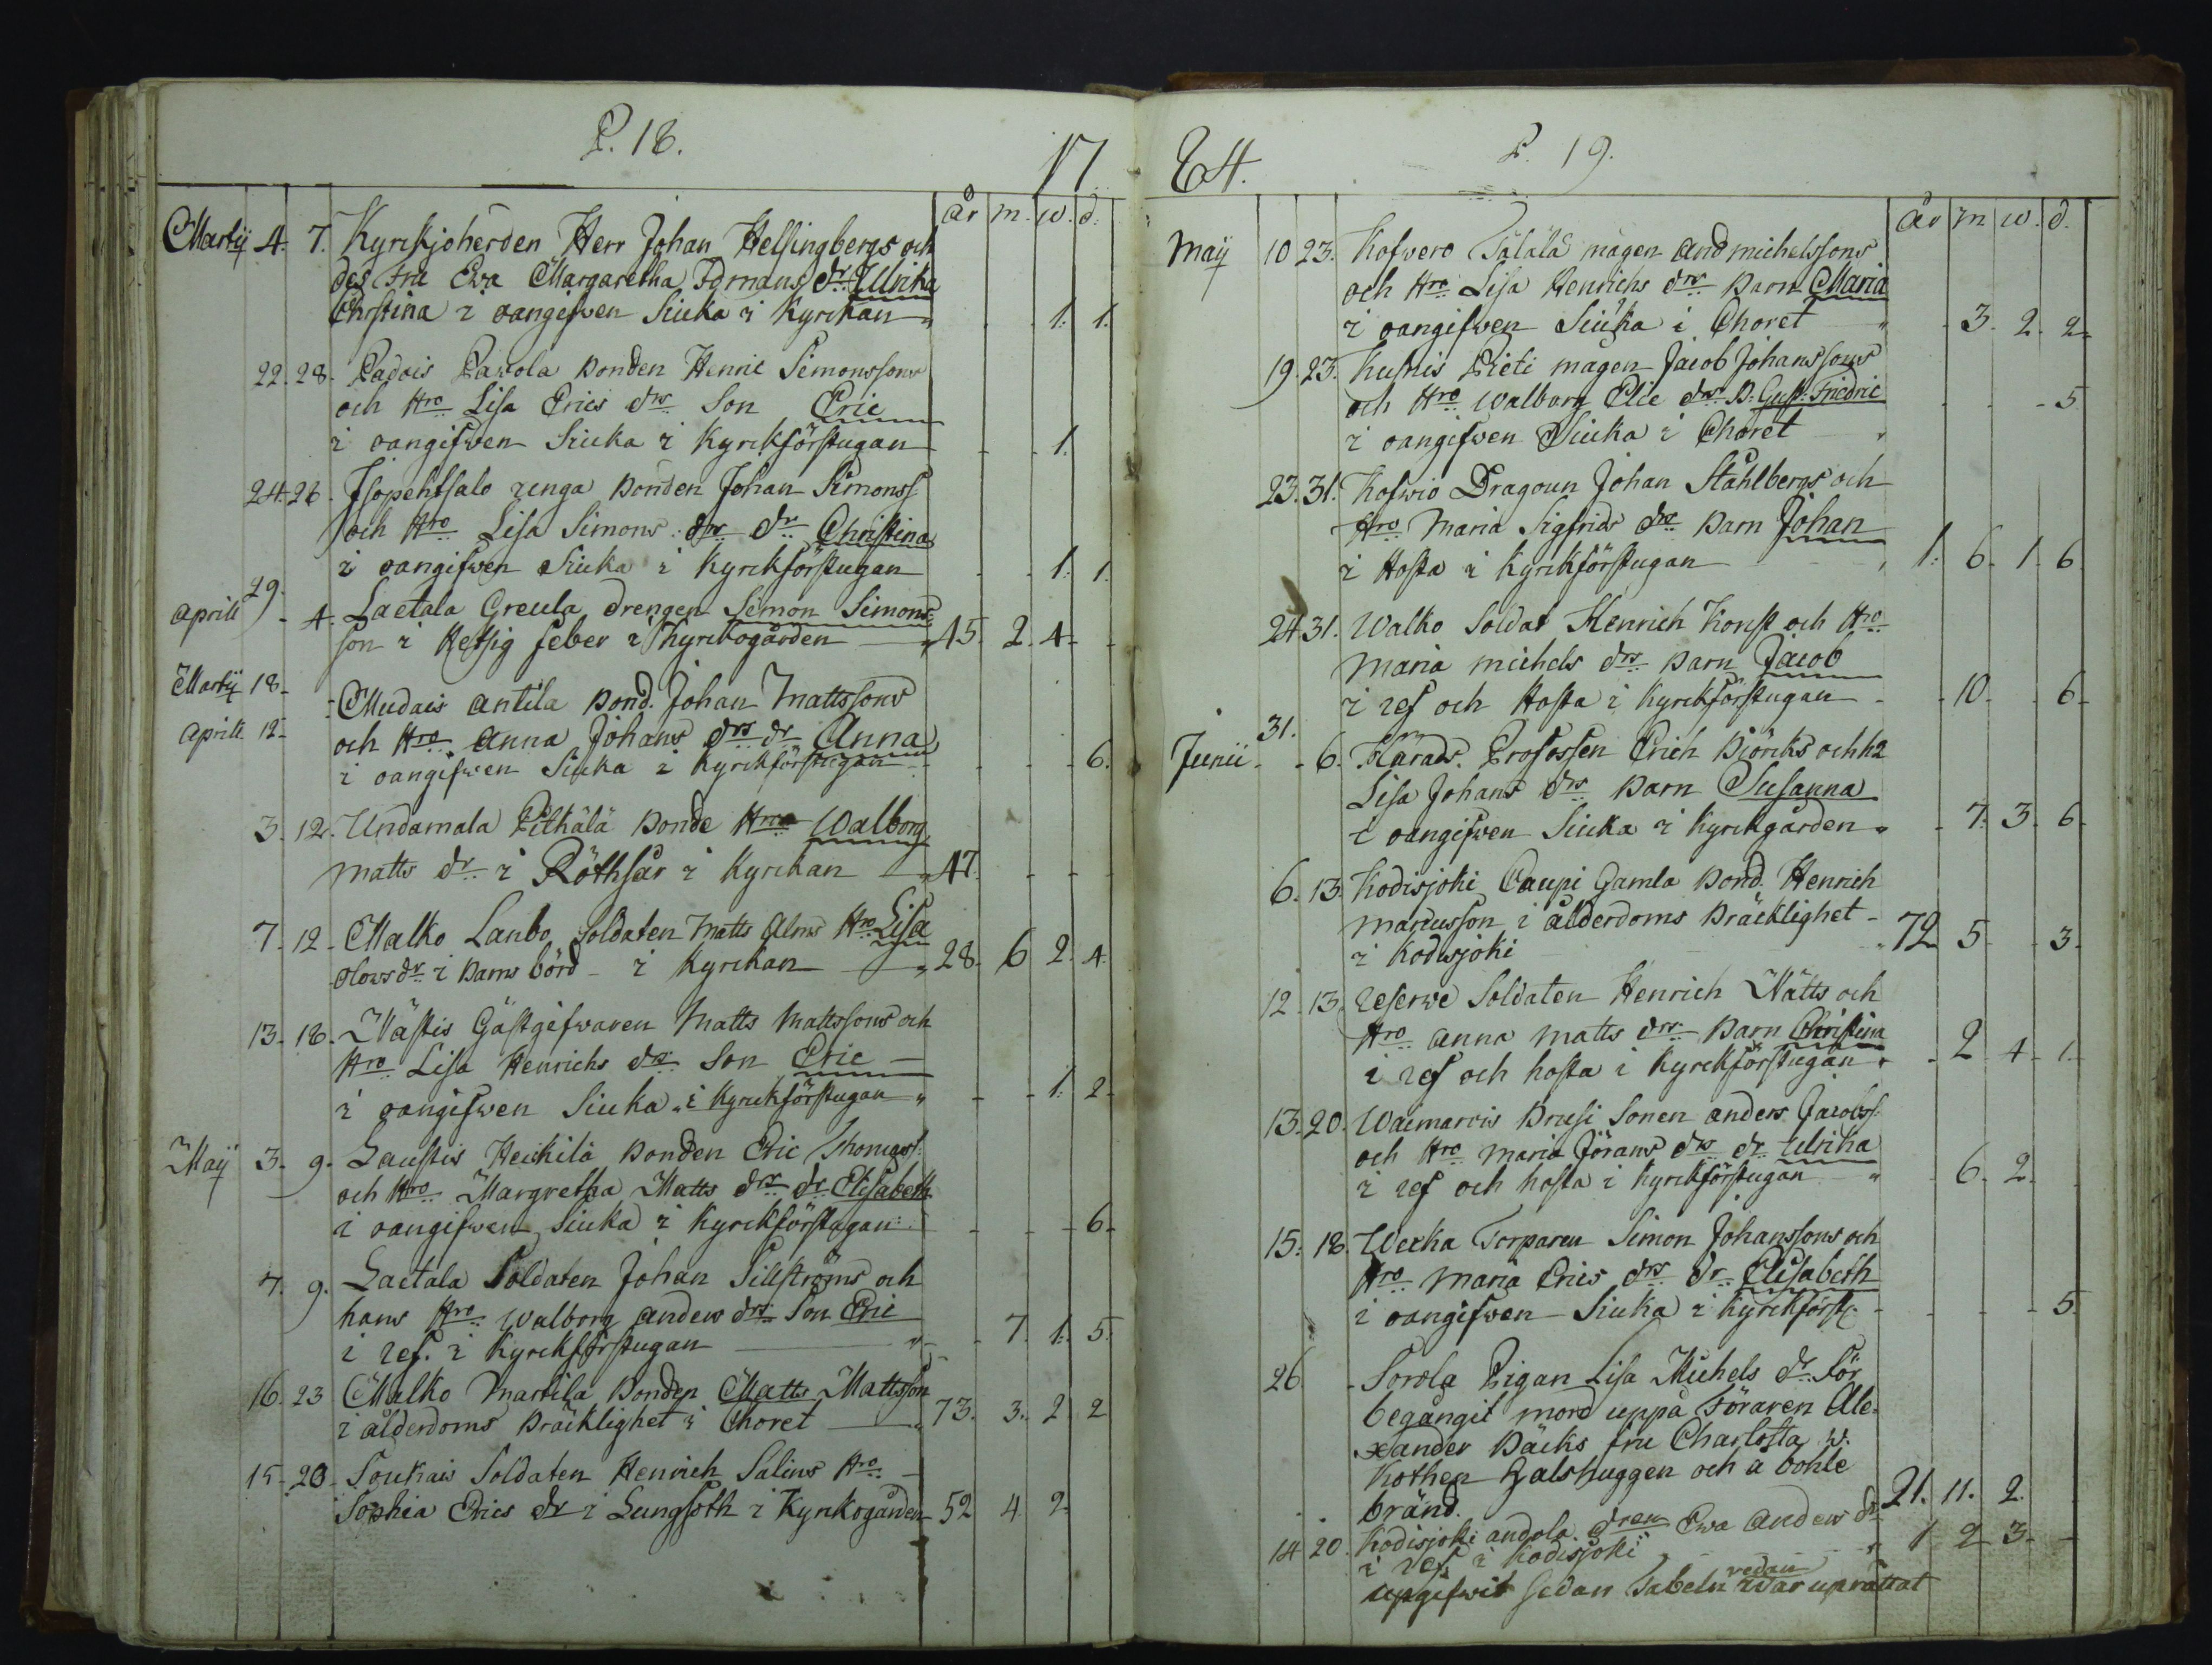 P. 18.
17
år m. w. d.
Martij 4. 7. Kyrkjoherden Herr Johan Helsingbergs och
des Fru Ewa Margaretha Idmans dr Ulrika
Christina i oangifven Siuka i Kyrckan 1. 1.
22. 28. Padois Bonden Henric Simonssons
och Hro Lisa Erics drs Son Eric
i oangifven Siuka i Kyrckförstugan 1.
24. 26. renga Bonden Johan Simonss
och Hro Lisa Simons drs dr Christina
i oangifven Siuka i Kyrckförstugan 1. 1.
29.
Aprill 4. Laetala Greula drengen Simon Simons
son i Hetsig feber i Kyrckogården 45. 2. 4.
Martij 18. Mudais Antila Bond. Johan Mattssons
Aprill 12. och Hro Anna Johans drs dr Anna
i oangifven Siuka i Kyrckförstugan 6.
3. 12. Undamala Pilkälä Bonde Hro Walborg
Matts dr i Röthsår i Kyrckan 47.
7. 12. Malko Laubo Soldaten Matts Alms Hro Lisa
Olows dr i Barns börd i Kyrckan 28. 6 2. 4.
13. 18. Wästis Gästgifvaren Matts Mattssons och
Hro Lisa Henrichs drs Son Eric
i oangifven Siuka i Kyrckförstugan 1. 2.
Maij 3. 9. Laustis Heickilä Bonden Eric Thomass:
och Hro Margretha Matts drs dr Elisabeth
i oangifven Siuka i Kyrckförstugan 6.
7. 9. Laetala Soldaten Johan Sillströms och
hans Hro Walborg Anders drs Son Eric
i ref. i Kyrckförstugan 7. 1. 5.
16. 23 Malko Martila Bonden Matts Mattsson
i ålderdoms Bräcklighet i Choret 73. 3. 2. 2
15. 20. Soukais Soldaten Henrich Salins Hro
Sophia Erics dr i Lungsoth i Kyrkogården 52 4 2.
64.
P. 19.
år m w. d.
Maij 10 23. Kofwero Tälälä mågen And michelssons
och Hro Lisa Henrichs drs Barn Maria
i oangifven Siuka i Choret 3. 2. 2.
19. 23. Kusnis Pieti mågen Jacob Johanssons
och Hro Walborg Elie drs B: Gust: Friedric
i oangifven Siuka i Choret 5
23. 31. Kofwio Dragoun Johan Ståhlbergs och
Hro Maria Sigfrids drs Barn Johan
i Hosta i Kyrckförstugan 1. 6. 1. 6
24 31. Walko Soldat Henrich Konst och Hro
Maria michels drs Barn Jacob
i ref och Hosta i Kyrckförstugan 10. 6.
31.
Junii 6. Härads Profossen Erich Björcks och h2
Lisa Johans drs Barn Susanna
i oangifven Siuka i Kyrckgården 7. 3. 6.
6. 13. Kodisjoki Caupi Gamla Bond. Henrich
Marcusson i ålderdoms Bräcklighet
i Kodisjoki 72 5 3.
12. 13. reserwe Soldaten Henrich Wätts och
Hro Anna Matts drs Barn Christina
i ref och hosta i Kyrckförstugan 2 4 1.
13. 20. Waimarois Brusi Sonen Anders Jacobss:
och Hro Maria Jörans drs dr Ulrika
i ref och hosta i Kyrckförstugan 6. 2.
15. 18. Werka Torparen Simon Johanssons och
Hro Maria Erics drs dr Elisabeth
i oangifven Siuka i Kyrckförst: 5.
26. Sorola Pigan Lisa Michels dr för
begångit mord uppå Föraren Ale
xander Bäcks fru Charlotta w.
Kothen halshuggen och å bohle
bränd. 21. 11. 2.
14 20. Kodisjoki Andola dren Ewa Anders dr
i ref i Kodisjoki 1 2 3.
upgifwit sedan Tabeln redan war uprättat